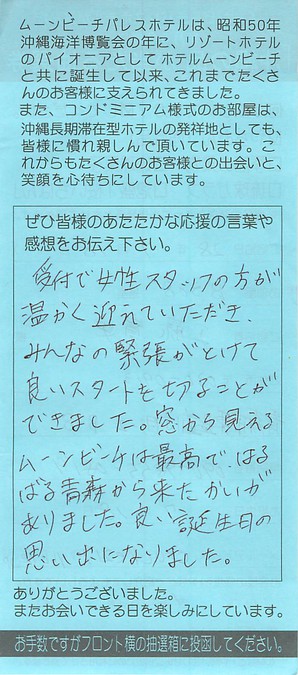 ムーンビーチパレスホテルは、昭和50年
沖縄海洋博覧会の年に、リゾートホテル
のパイオニアとしてホテルムーンビーチ
と共に誕生して以来、これまでたくさ
んのお客様に支えられてきました。
また、コンドミニアム様式のお部屋は、
沖縄長期滞在型ホテルの発祥地としても、
皆様に慣れ親しんで頂いています。こ
れからもたくさんのお客様との出会いと、
笑顔を心待ちにしています。
ぜひ皆様のあたたかな応援の言葉や
感想をお伝え下さい。
受付で女性スタッフの方が
温かく迎えていただき、
みんなの緊張がとけて
良いスタートを切ることが
できました。窓から見える
ムーンビーチは最高で、はる
ばる青森から来たかいが
ありました。良い誕生日の
思い出になりました。
ありがとうございました。
またお会いできる日を楽しみにしています。
お手数ですがフロント横の抽選箱に投函してください。